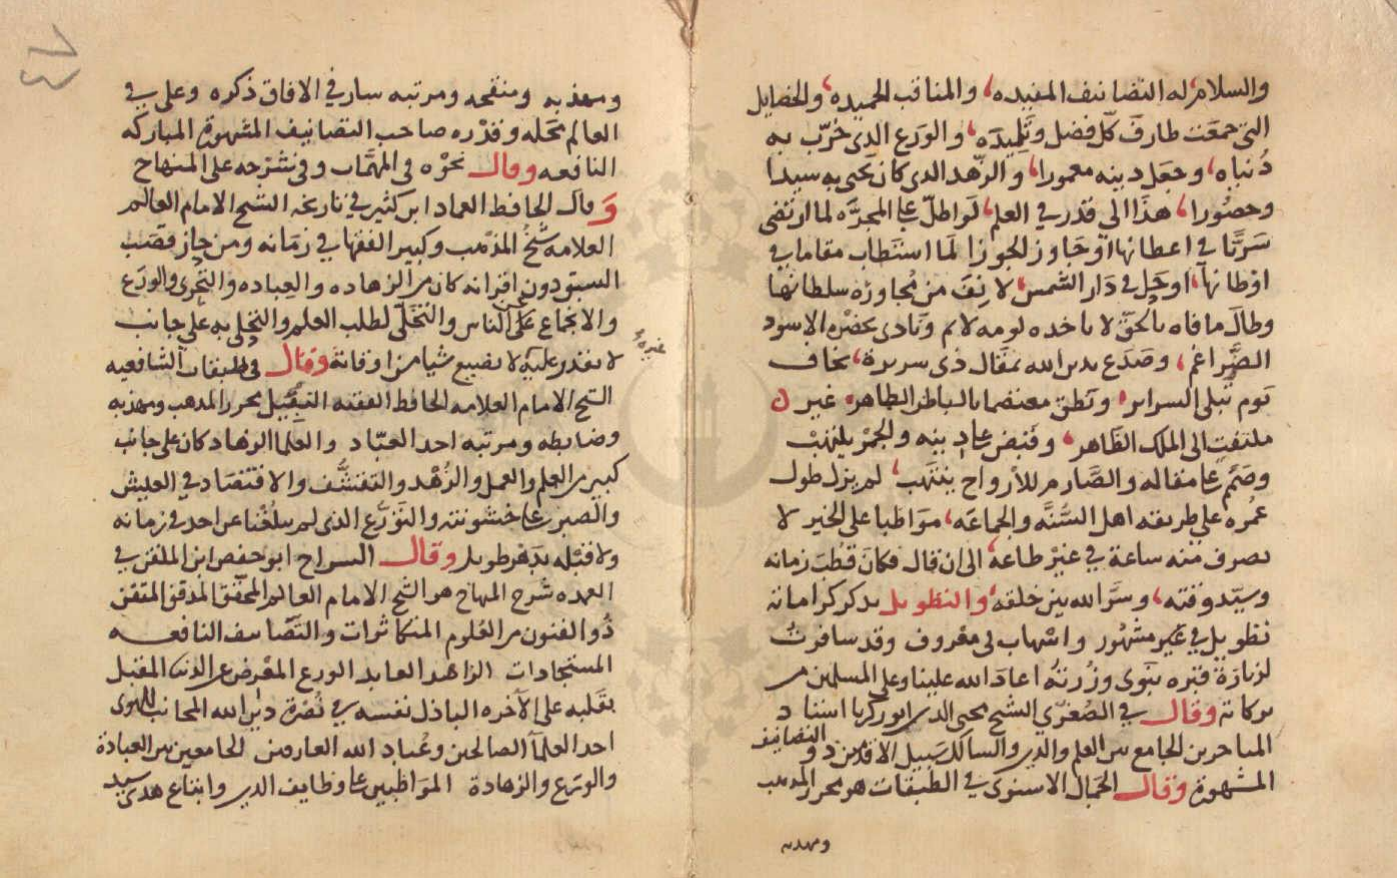 والسلام له التصانيف المفيده، والمناقب الحميده، والخصايل
التي جمعت طارف كل فضل وتليده، والورع الذي خرب به
دنياه، وجعل دينه معمورا، والزهد الذي كان يحيى به سيدا
وحصورا، هذا الى قدر في العلم، لو اطل على المجره لما ارتضى
سريا في اعطانها او جاوز الجوزا لما استطاب مقاما في
اوطانها، او حل في دار الشمس، لانف من مجاورة سلطانها
وطال ما فاه بالحق لا تاخذه لومه لائم ونادى بحضرة الاسود
الضراغم، وصدع بدين الله بمقال ذى سريرة، يخاف
يوم تبلى السراير، ونطق معتصما بالباطن الظاهر، غير
ملتفت الى الملك الظاهر، وقبض على دينه والجمر يلتهب
وصمم على مقاله والصارم للأرواح ينتهب، لم يزل طول
عمره على طريقه اهل السنه والجماعه، مواظبا على الخير لا
يصرف منه ساعة في غير طاعة، الى ان قال فكان قطب زمانه
وسيد وقته، وسر الله بين خلقه، والتطويل بذكر كراماته
تطويل في غير مشهور واسهاب في معروف وقد سافرت
لزيارة قبره بنوى وزرته اعاد الله علينا وعلى المسلمين من
بركاته وقال في الصغرى الشيخ محيى الدين ابو زكريا استاد
المتاخرين الجامع بين العلم والدين والسالك سبيل الاقدمين ذو التصانيف
المشهورة وقال الجمال الاسنوى في الطبقات هو محرر المذهب
ومهذبه
ومهذبه ومنقحه ومرتبه سار في الافاق ذكره وعلى في
العالم محله وقدره صاحب التصانيف المشهورة المباركه
النافعه وقال نحوه في المهمات وفي شرحه على المنهاج
وقال الحافظ العماد ابن كثير في تاريخه الشيخ الامام العالم
العلامه شيخ المذهب وكبير الفقها في زمانه ومن حاز قصب
السبق دون اقرانه كان من الزهاده والعباده والتحري والورع
والانجماع عن الناس والتخلى لطلب العلم والتحلى به على جانب
لا يقدر عليه لا يضيع شيا من اوقاته وقال في طبقات الشافعيه
غيره
الشيخ الامام العلامه الحافظ الفقيه النبيل محرر المذهب ومهذبه
وضابطه ومرتبه احد العباد والعلما الزهاد كان على جانب
كبير من العلم والعمل والزهد والتقشف والاقتصاد في العيش
والصبر على خشونته والتورع الذي لم يبلغنا عن احد في زمانه
ولا قبله بدهر طويل وقال السراج ابو حفص ابن الملقن في
العمده شرح المنهاج هو الشيخ الامام العالم المحقق المدقق المتقن
ذو الفنون من العلوم المتكاثرات والتصانيف النافعه
المستجادات الزاهد العابد الورع المعرض عن الدنيا المقبل
بقلبه على الآخره الباذل نفسه في نصرة دين الله المجانب للهوى
احد العلما الصالحين وعباد الله العارفين الجامعين بين العبادة
والورع والزهادة المواظبين على وظايف الدين واتباع هدى سيد